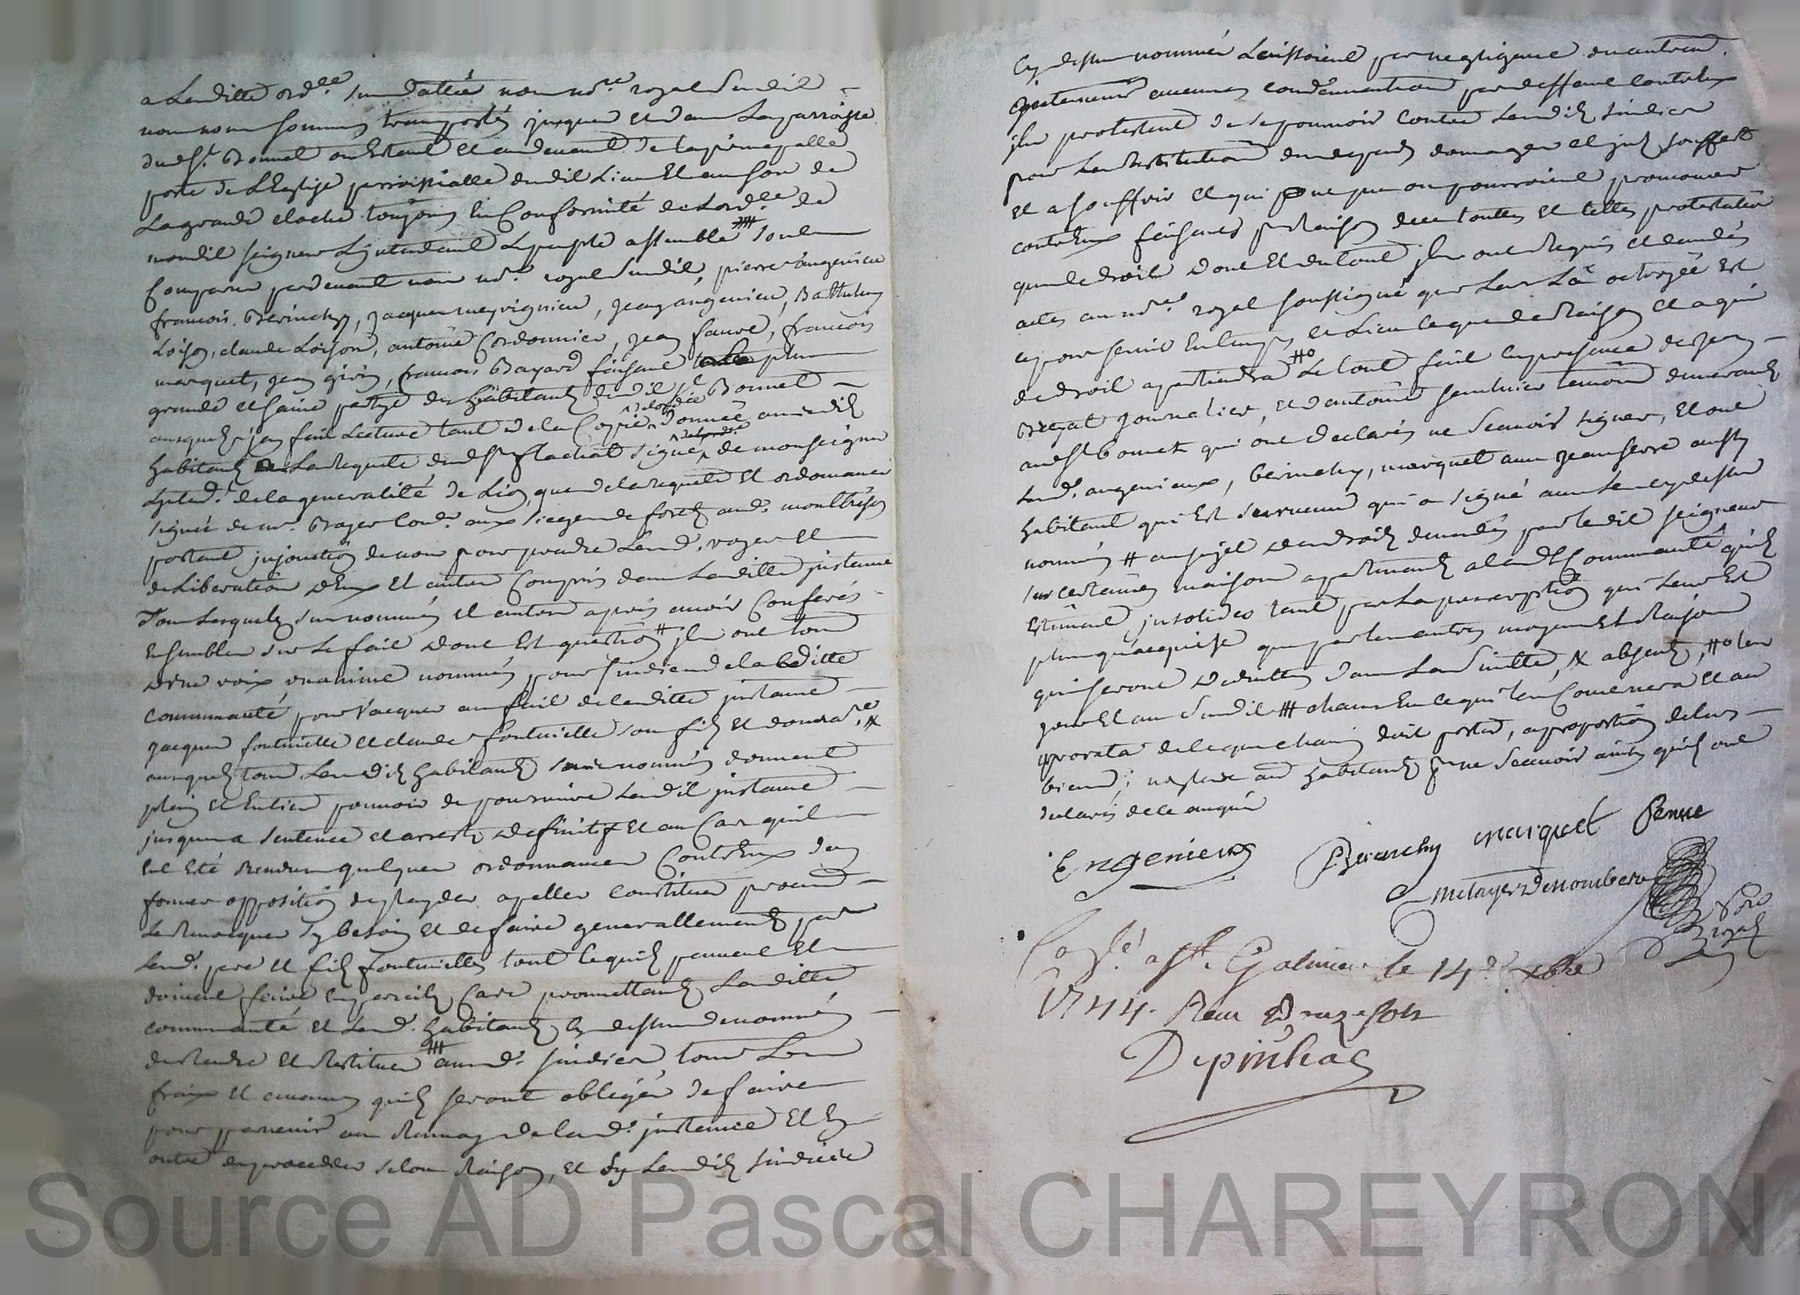 a Laditte ord.ce susdattée nous no.re royal Susdit
nous nous sommes transportés jusques et dans La parroisse
du d. St. Bonnet ou Estant et au devant de la principalle
porte de L'Eglise parroissialle dudit Lieu Et au son de
La grande cloche toujours En Conformité de L'ord.ce de
mondit seigneur L'jntendant Le peuple assemblé sont
Comparus pardevant nous no.re royal Susdit, pierre angenieux
francois Berinchy, jacques meyrignieu, jean angenieu, Barthelemy
Loison, claude Loison, antoine Cordonnier, jean faure, francois
marquet, jean giry, francois Bayard faisant plus
grande et saine partye des habitants dudit St. Bonnet
ausquels jay fait Lecture tant de la Coppie donnée ausdits
habitants La Requete dud. Sr. flachat signé de monseigneur
L'jntend.t de la generalité de Lion, que de la requete et ordonnance
signée de mr. Boyer Cons.r aux sieges de forest aud. montbrison
portant jnjonction de nous pour prendre Lesd. voyes Et
deliberation d'Eux et autres Compris dans Laditte jnstance
Tous Lesquels surnommés et autres apres avoir Conferés
Ensembles sur Le fait dont Est question jls ont tous
d'une voix unanime nommés pour sindics de la ditte
communauté pour vacquer au fait de laditte jnstance
jacques fontvielle et claude fontvielle son fils et
ausquels tous Lesdits habitants nommés donnent
plein et Entier pouvoir de poursuivre Ladit jnstance
jusques a sentence et arrest definitif Et au Cas quil
eut Eté Rendu quelques ordonnances Contr'Eux d'y
former opposition de playder apeller constituer procur
Le Revoquer sy besoin Et de faire generallement par
Lesd. pere et fils fontvielles tout ce quils peuvent Et
doivent faire En pareils Cas promettants Laditte
communauté et Lesd. habitants Cy dessus denommés
de Rendre et Restituer aud. sindics tous Les
fraix et avances quils seront obligés de faire
pour parvenir au de lad. jnstance Et En
outre En proceder selon Raison, et sy Lesdits sindics
Cy dessus nommés Laissoient par negligence ou autrem.
aucunes condamnations par deffaut contr'eux
jls protestent de se pourvoir contre Lesdits sindics
pour La Restitution des depens domages et jnt. souffert
Et a souffrir et qui que que on pourroient promouvoir
contr'Eux faisants par Raison de ce toutes Et telles protestations
que de droit dont Et du tout jls ont Requis et demandés
actes au no.re royal soussigné que Leur La octroyée Et
ce pour servir En temps et Lieu ce que de Raison et a qui
de droit apartiendra Le tout fait En presence de jean
Breyat journalier, et d'antoine temoins demeurants
aud. St. bonnet qui ont declarés ne Scavoir signer, Et ont
Lesd. angenieux, berinchy, marquet avec jean serre aussy
habitant qui Est survenu qui a signé avec Les cy dessus
nommés au sujet des droits demandés par ledit seigneur
sur certaines maisons apartenants a lad. Communauté quils
Estiment jnsolides tant par La prescription qui Leur Est
plus qu'acquise que par les autres moyens Et Raisons
qui seront deduittes dans La Suitte, absents, en
gens Et au Susdit chacun En ce qui Les Concernera Et au
prorata de ce que chacun doit porter, a proportion de leurs
biens; non les autres habitants pour ne Scavoir ainsy quils ont
declarés de ce enquis
Engenieux Berinchy marquet Serre
metayer Denombera
No.re royal
Con.lé a St. Galmier le 14.e xbre
1744. Reçu Douze sols
Depinhac
Source AD Pascal CHAREYRON